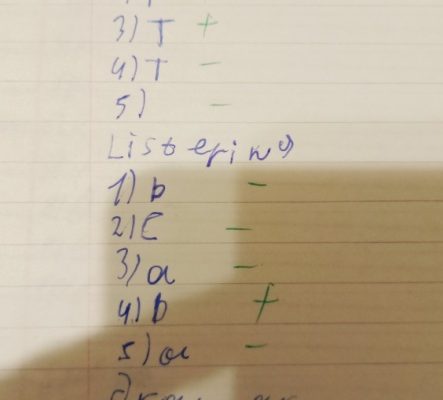 3) T +
4) T -
5) -
Listering
1) b -
2) C -
3) a -
4) b +
5) a -